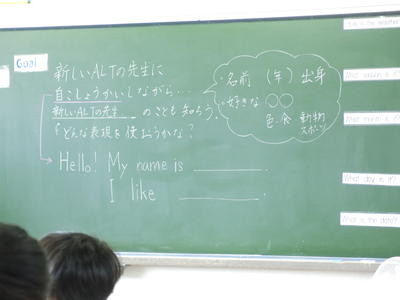 Goal
新しいALTの先生に
自こしょうかいしながら…
新しいALTの先生 のことも知ろう。
どんな表現を使おうかな？
Hello! My name is
I like .
・名前 (年) 出身
・好きな○○
色・食 動物
スポーツ
How is the weather
What season is it?
What month is it?
What day is it?
What is the date?